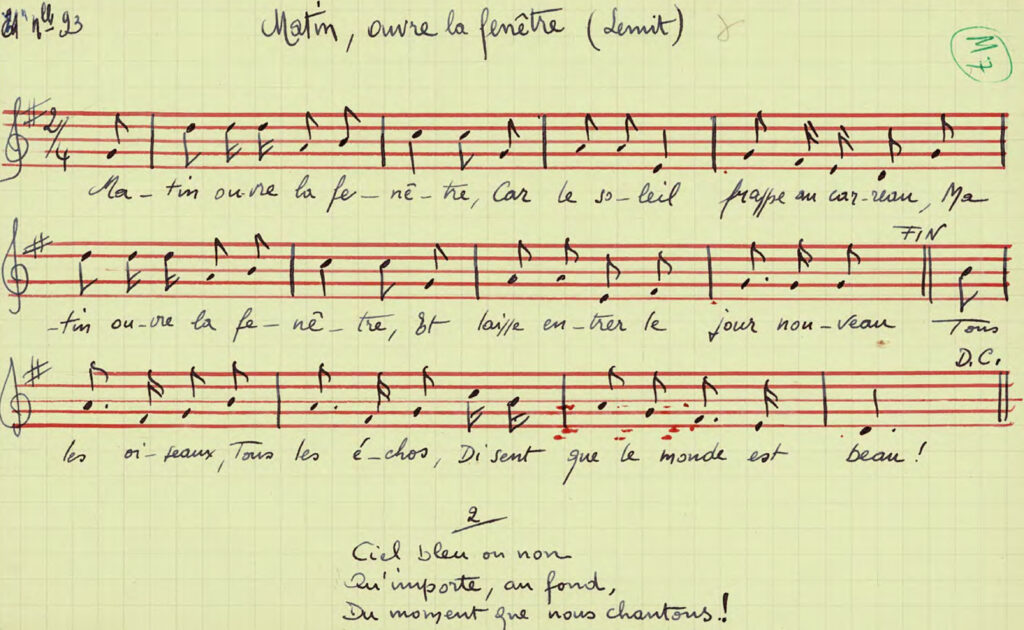 n° 93
Matin, ouvre la fenêtre (Lemit)
M7
2/4
Ma - tin ou-vre la fe - nê - tre, Car le so - leil frappe au car-reau, Ma
FIN
-tin ou-vre la fe - nê - tre, Et laisse en - trer le jour nou - veau Tous
D.C.
les oi - seaux, Tous les é - chos, Di sent que le monde est beau !
2
Ciel bleu ou non
Qu'importe, au fond,
Du moment que nous chantons !